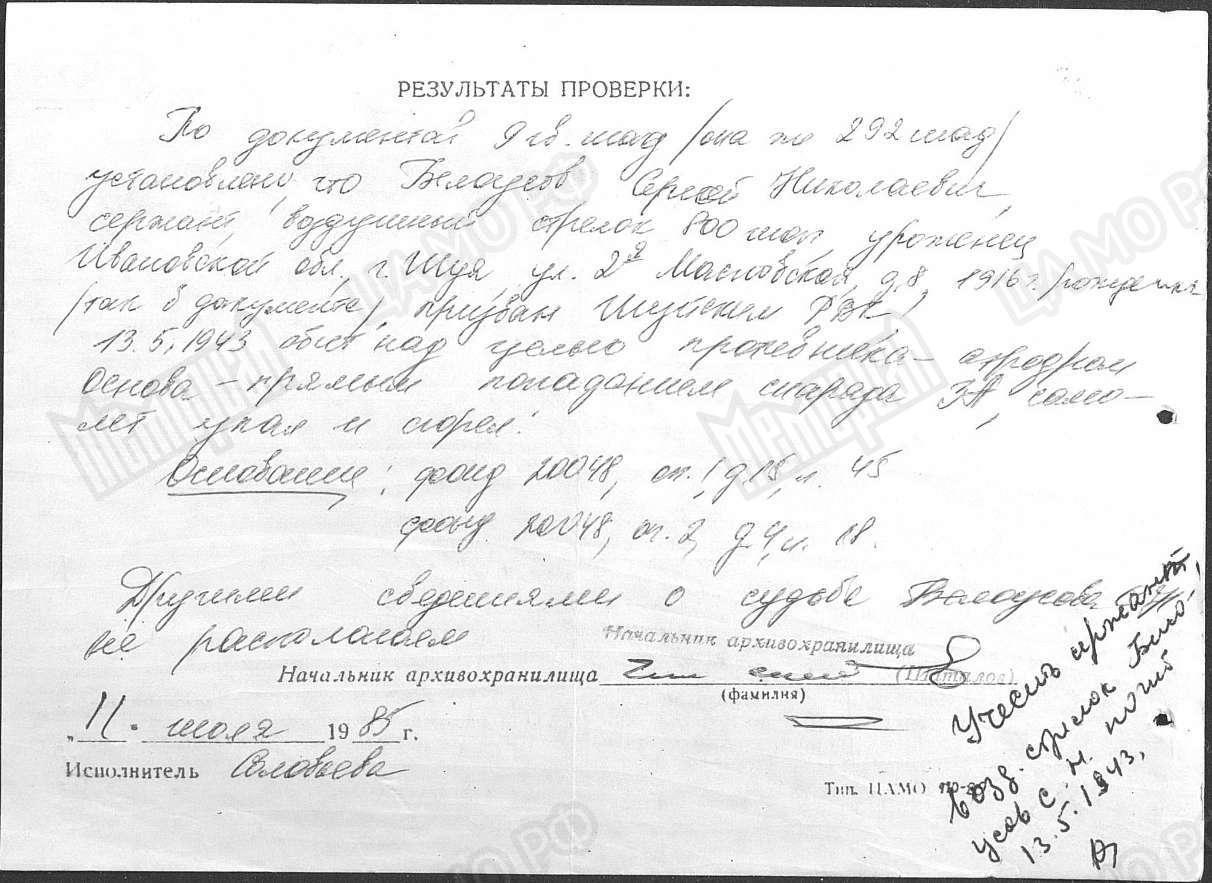 РЕЗУЛЬТАТЫ ПРОВЕРКИ:
По документам 9 гв. шад /она же 292 шад/
установлено, что Белоусов Сергей Николаевич,
сержант, воздушный стрелок 800 шап, уроженец
Ивановской обл., г. Шуя, ул. 2я Масловская, д. 8, 1916 г. /рождения
/так в документе/, призван Шуйским РВК,
13.5.1943 сбит над целью противника – аэродром
Основа – прямым попаданием снаряда ЗА, само-
лет упал и сгорел.
Основание: фонд 20048, оп. 1, д. 15, л. 45
фонд 20048, оп. 2, д. 4, л. 18.
Другими сведениями о судьбе Белоусова
не располагаем
Начальник архивохранилища
Начальник архивохранилища
(фамилия)
„11" июля 1985 г.
Исполнитель Соловьева
Тип. ЦАМО
Учесть сержант,
возд. стрелок Бело-
усов С. Н. погиб
13.5.1943,
ЦАМО РФ
Мемориал